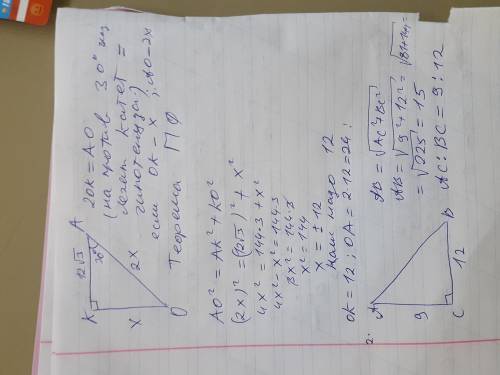 K
A
12√3
30°
x
2x
O
2OK = AO
(на против 30° 
лежит катет =
гипотенузы)
если OK - x ; AO - 2x
Теорема ПФ
AO² = AK² + KO²
(2x)² = (12√3)² + x²
4x² = 144·3 + x²
4x² - x² = 144·3
3x² = 144·3
x² = 144
x = ± 12
Нам надо 12
OK = 12 ; OA = 2·12 = 24;
2.
A
9
C
12
B
AB = √AC²+BC²
AB = √9²+12² = √81+144 =
= √225 = 15
AC : BC = 9 : 12